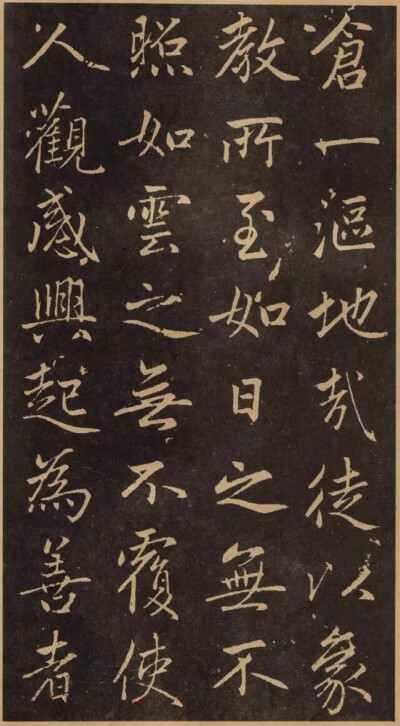 滄一漚地㢤徒以象
教所至如日之無不
照如雲之無不覆使
人觀感興起為善者